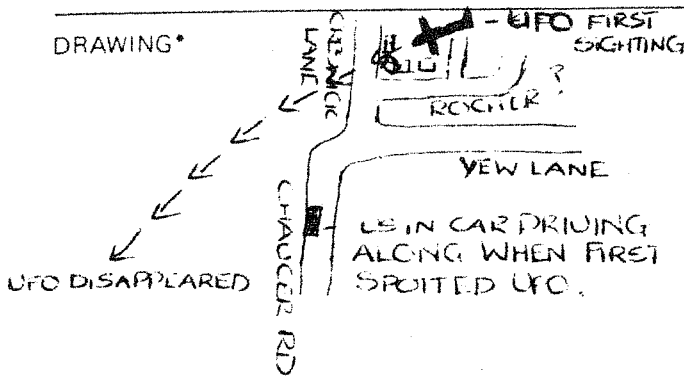 DRAWING*
UFO FIRST
SIGHTING
LANE
?
YEW LANE
CHAUCER RD
US IN CAR DRIVING
ALONG WHEN FIRST
SPOTTED UFO.
UFO DISAPPEARED